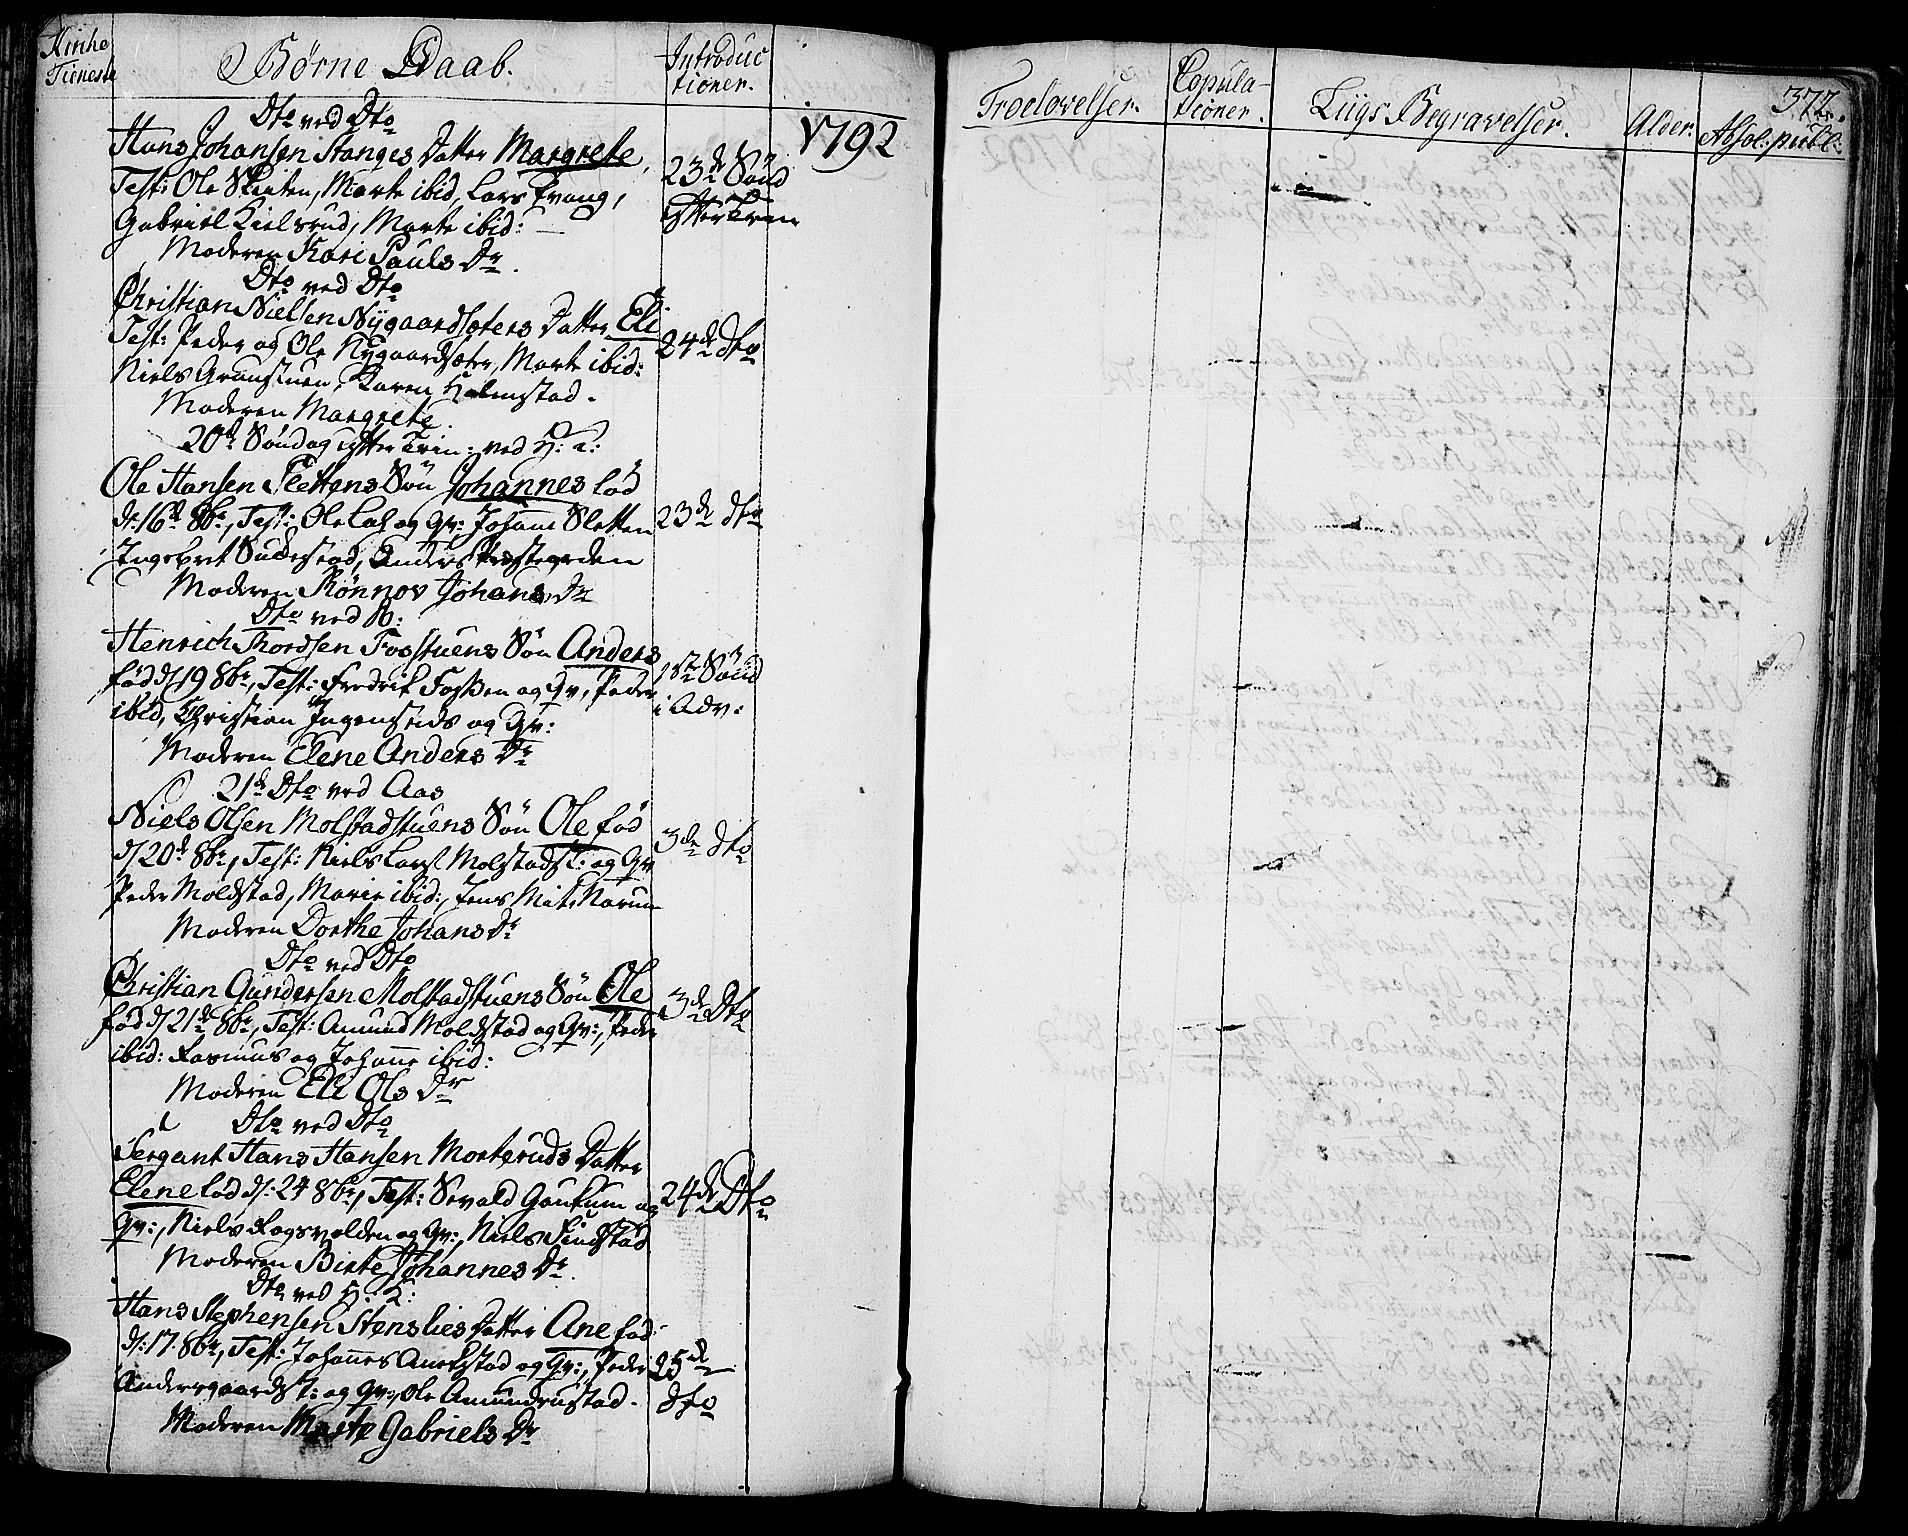 Kirke
Tieneste
Børne Daab.
Introduc
tioner.
1792
Dto ved Dto
Hans Johansen Stanges Datter Margrete,
Test: Ole Skiten, Marte ibid, Lars Evang,
Gabriel Kielsrud, Marte ibid:
Moderen Kari Pauls Dr.
23de Sønd
efter Trin
Dto ved Dto
Christian Nielsen Nygaardsæters Datter Eli
Test: Peder og Ole Nygaardsæter, Marte ibid:
Niels Graustuen, Karen Holmstad.
Moderen Margrete.
24de Dto
20de Søndag efter Trin: ved H: K:
Ole Hansen Slettens Søn Johannes fød
d: 16de 8br, Test: Ole Lag og Qv: Johane Sletten
Ingebret Sudestad, Anders Præstegrden
Moderen Rønnov Johans Dr
23de dto
Dto ved B:
Henrich Thordsen Fosstuens Søn Anders
fød d/19 8br, Test: Fredrik Fossen og Qv, Peder
ibid, Christian Ingenstids og Qv:
Moderen Elene Anders Dr
1ste Sønd
i Adv:
21de Dto ved Aas
Niels Olsen Molstadstuens Søn Ole fød
d/20de 8br, Test: Niels Larss Molstadst: og Qv
Peder Moldstad, Marie ibid:, Jens Narum
Moderen Dorthe Johans Dr
3de dto
Dto ved Dto
Christian Gundersen Molstadstuens Søn Ole
fød d/21de 8br, Test: Amund Moldstad og Qv:, Peder
ibid: Rasmus og Johanne ibid:
Moderen Eli Ols Dr
3de Dto
Dto ved Dto
Sergant Hans Hansen Morteruds Datter
Elene fød d: 24 8br, Test: Sevald Gaukum og
Qv:, Niels Ragsvolden og Qv:, Niels Findstad
Moderen Birte Johannes Dr.
24de Dto
Dto ved H: K:
Hans Stephensen Stenslies Datter Ane fød
d: 17. 8br, Test: Johannes Anekstad og Qv:, Peder
Andersgaardst: og Qv:, Ole Amundrustad.
Moderen Marte Gabriels Dr
25de
dto
Troelovelser.
Copula-
tioner.
Liigs Begravelser.
Alder.
Absol: publ:
372.